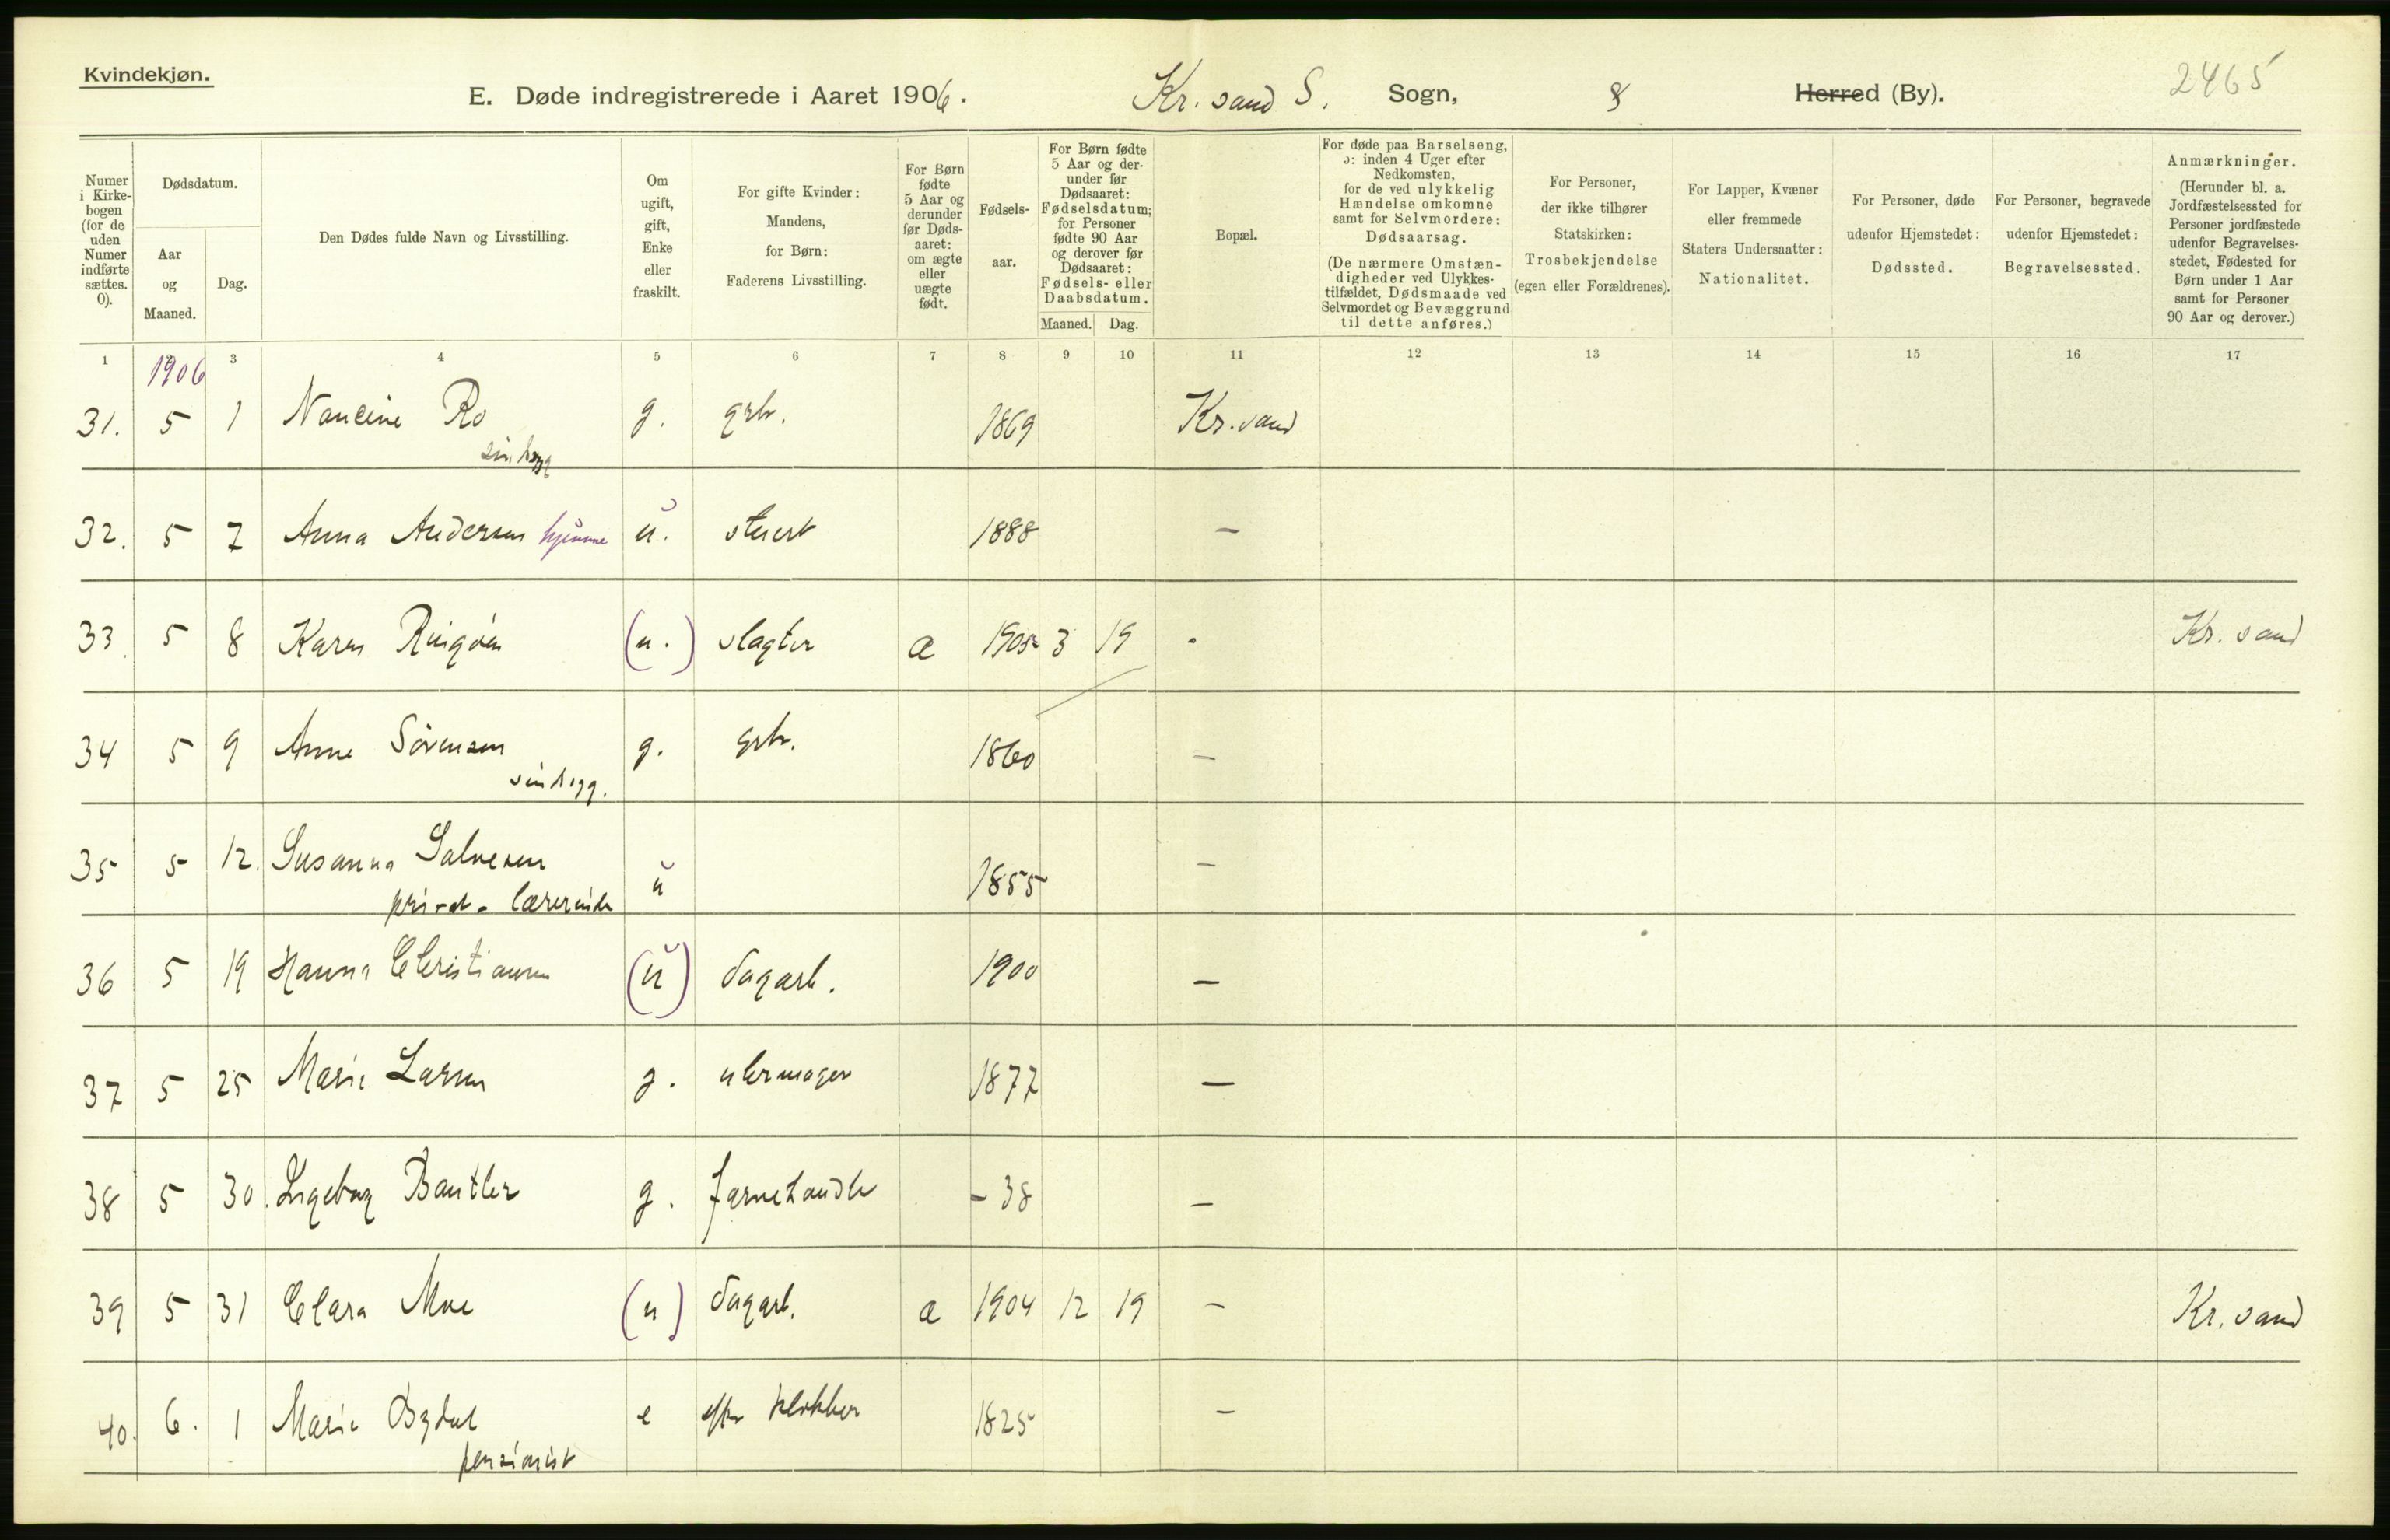 Kvindekjøn.
E. Døde indregistrerede i Aaret 1906. Kr. sand S. Sogn, Herred (By). 2465
Numer i Kirkebogen (for de uden Numer indførte sættes. 0).
Dødsdatum.
Aar og Maaned.
Dag.
Den Dødes fulde Navn og Livsstilling.
Om ugift, gift, Enke eller fraskilt.
For gifte Kvinder: Mandens, for Børn: Faderens Livsstilling.
For Børn fødte 5 Aar og derunder før Dødsaaret: om ægte eller uægte født.
Fødselsaar.
For Børn fødte 5 Aar og derunder før Dødsaaret: Fødselsdatum; for Personer fødte 90 Aar og derover før Dødsaaret: Fødsels- eller Daabsdatum.
Maaned. Dag.
Bopæl.
For døde paa Barselseng, ɔ: inden 4 Uger efter Nedkomsten, for de ved ulykkelig Hændelse omkomne samt for Selvmordere: Dødsaarsag. (De nærmere Omstændigheder ved Ulykkestilfældet, Dødsmaade ved Selvmordet og Bevæggrund til dette anføres.)
For Personer, der ikke tilhører Statskirken: Trosbekjendelse (egen eller Forældrenes).
For Lapper, Kvæner eller fremmede Staters Undersaatter: Nationalitet.
For Personer, døde udenfor Hjemstedet: Dødssted.
For Personer, begravede udenfor Hjemstedet: Begravelsessted.
Anmærkninger. (Herunder bl. a. Jordfæstelsessted for Personer jordfæstede udenfor Begravelsesstedet, Fødested for Børn under 1 Aar samt for Personer 90 Aar og derover.)
1 2 3 4 5 6 7 8 9 10 11 12 13 14 15 16 17
1906
31. 5 1 Nancine Ro g. grb. 1869 Kr. sand
sindsyg
32. 5 7 Anna Andersen hjemme u. stuert 1888 -
33 5 8 Karen (u.) slagter æ 1905 3 19 - Kr. sand
34 5 9 Anne Sörensen g. grb. 1860 -
sindsyg.
35 5 12. Susanna Salvesen u 1855 -
privat-lærerinde
36 5 19 Hanna Christiansen (u) dagarb. 1900 -
37 5 25 Marie Larsen g. uhrmager 1877 -
38 5 30. Ingeborg g. jernehandle - 38 -
39 5 31 Clara Moe (u) dagarb. æ 1904 12 19 - Kr. sand
40. 6. 1 Marie e efter klokker 1825 -
pensionist